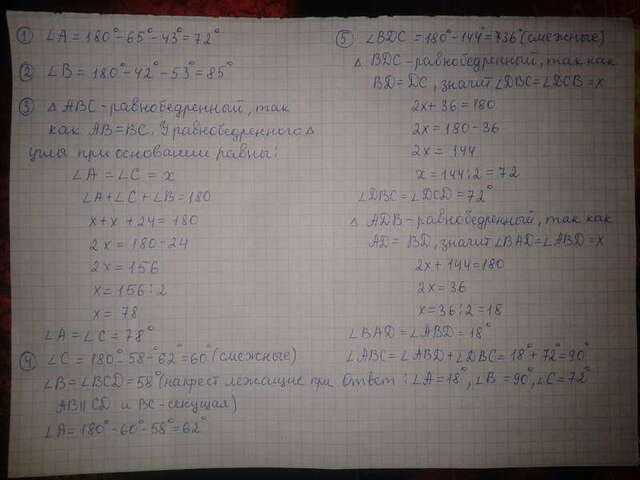 ① ∠A = 180° - 65° - 43° = 72°
② ∠B = 180° - 42° - 53° = 85°
③ △ ABC - равнобедренный, так
как AB = BC. У равнобедренного △
углы при основании равны:
∠A = ∠C = x
∠A + ∠C + ∠B = 180
x + x + 24 = 180
2x = 180 - 24
2x = 156
x = 156 : 2
x = 78
∠A = ∠C = 78°
④ ∠C = 180° - 58 - 62° = 60° (смежные)
∠B = ∠BCD = 58° (накрест лежащие при
AB || CD и BC - секущая)
∠A = 180° - 60° - 58° = 62°
⑤ ∠BDC = 180° - 144° = 36° (смежные)
△ BDC - равнобедренный, так как
BD = DC, значит ∠DBC = ∠DCB = x
2x + 36 = 180
2x = 180 - 36
2x = 144
x = 144 : 2 = 72
∠DBC = ∠DCD = 72°
△ ADB - равнобедренный, так как
AD = BD, значит ∠BAD = ∠ABD = x
2x + 144 = 180
2x = 36
x = 36 : 2 = 18
∠BAD = ∠ABD = 18°
∠ABC = ∠ABD + ∠DBC = 18° + 72° = 90°
Ответ: ∠A = 18°, ∠B = 90°, ∠C = 72°